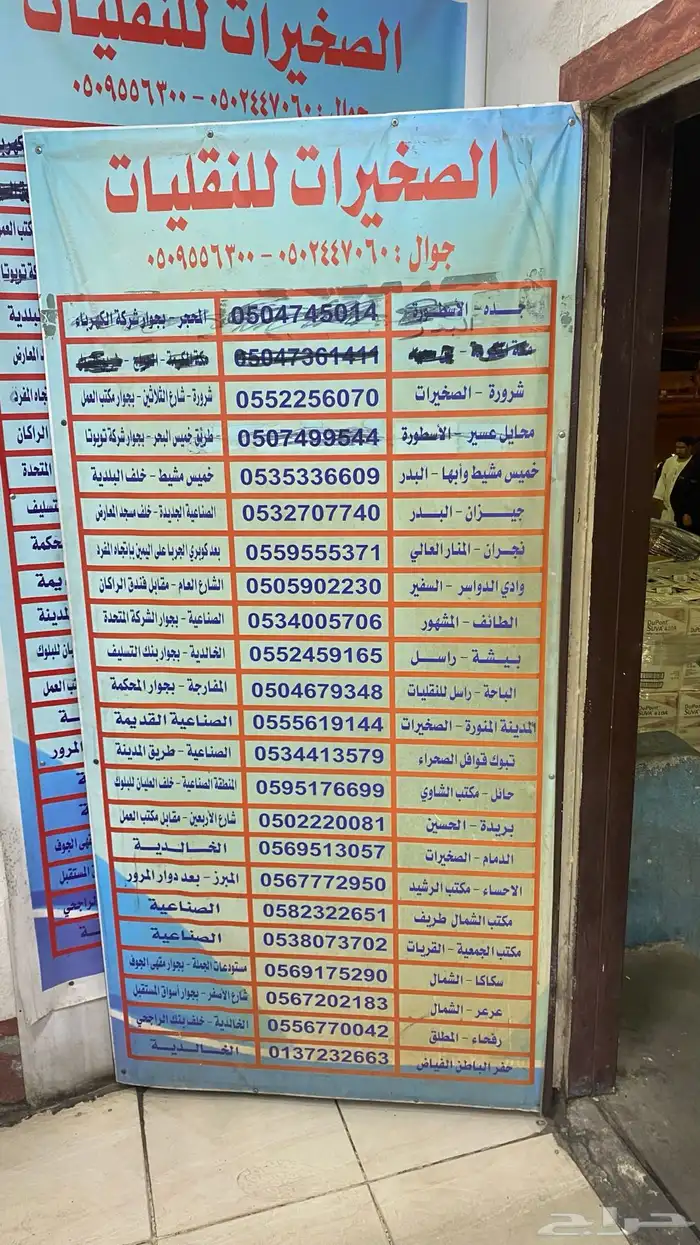 الصخيرات للنقليات
جوال : ٠٥٠٢٤٤٧٠٦٠ - ٠٥٠٩٥٥٦٣٠٠
الصخيرات للنقليات
جوال : ٠٥٠٢٤٤٧٠٦٠ - ٠٥٠٩٥٥٦٣٠٠
جده - الاسطورة البدر 0504745014 المحجر - بجوار شركة الكهرباء
05047361411
شرورة - الصخيرات 0552256070 شرورة - شارع الثلاثين - بجوار مكتب العمل
محايل عسير - الأسطورة 0507499544 طريق خميس البحر - بجوار شركة تويوتا
خميس مشيط وأبها - البدر 0535336609 خميس مشيط - خلف البلدية
جيزان - البدر 0532707740 الصناعية الجديدة - خلف مسجد المعارض
نجران - المنار العالي 0559555371 بعد كوبري الجربا على اليمين باتجاه المفرد
وادي الدواسر - السفير 0505902230 الشارع العام - مقابل فندق الراكان
الطائف - المشهور 0534005706 الصناعية - بجوار الشركة المتحدة
بيشة - راسل 0552459165 الخالدية - بجوار بنك التسليف
الباحة - راسل للنقليات 0504679348 المفارجة - بجوار المحكمة
المدينة المنورة - الصخيرات 0555619144 الصناعية القديمة
تبوك قوافل الصحراء 0534413579 الصناعية - طريق المدينة
حائل - مكتب الشاوي 0595176699 المنطقة الصناعية - خلف العليان للبلوك
بريدة - الحسين 0502220081 شارع الأربعين - مقابل مكتب العمل
الدمام - الصخيرات 0569513057 الخالدية
الاحساء - مكتب الرشيد 0567772950 المبرز - بعد دوار المرور
مكتب الشمال طريف 0582322651 الصناعية
مكتب الجمعية - القريات 0538073702 الصناعية
سكاكا - الشمال 0569175290 مستودعات الجملة - بجوار مقهى الجوف
عرعر - الشمال 0567202183 شارع الأصفر - بجوار أسواق المستقبل
رفحاء - المطلق 0556770042 الخالدية - خلف بنك الراجحي
حفر الباطن الفياض 0137232663 الخالدية
DuPont
SUVA
حراج